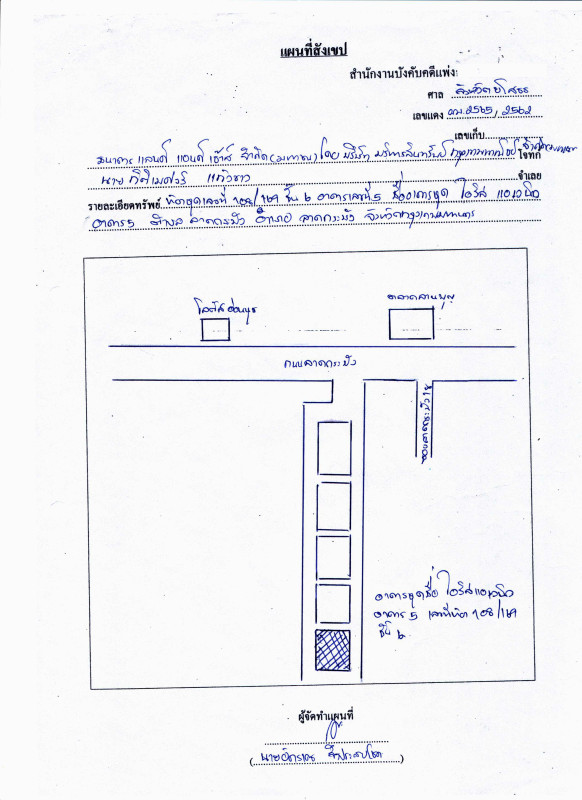 แผนที่สังเขป
สำนักงานบังคับคดีแพ่ง
ศาล จังหวัดยโสธร
เลขแดง ผบ.2565/2562
เลขเก็บ
ธนาคาร แลนด์ แอนด์ เฮ้าส์ จำกัด (มหาชน) โดย บริษัท บริหารสินทรัพย์ กรุงเทพพาณิชย์ จำกัด (มหาชน) โจทก์
นาย แก้วขาว จำเลย
รายละเอียดทรัพย์ ห้องชุดเลขที่ 108/169 ชั้น ๖ อาคารเลขที่ 5 ชื่ออาคารชุด ไอริส แอเวนิว
อาคาร 5 ตำบล ลาดกระบัง อำเภอ ลาดกระบัง จังหวัดกรุงเทพมหานคร
โลตัสอ่อนนุช
ตลาดลานบุญ
ถนนลาดกระบัง
ซอยลาดกระบัง 18
อาคารชุดชื่อ ไอริสแอเวนิว
อาคาร 5 เลขที่ห้อง 108/169
ชั้น ๖
ผู้จัดทำแผนที่